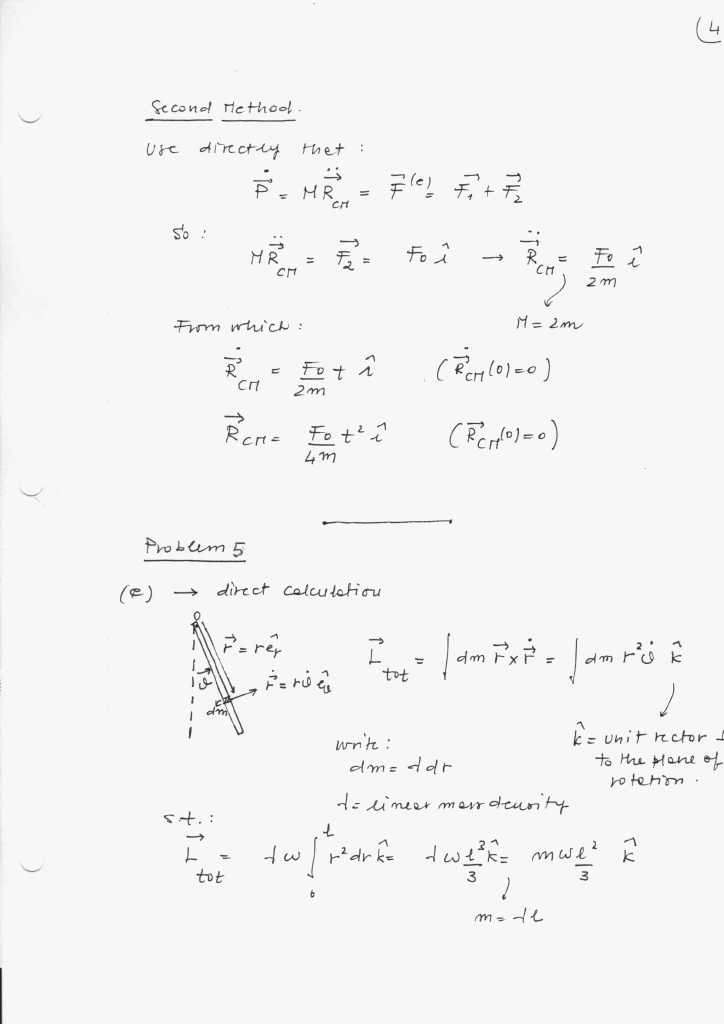 (4
Second Method.
Use directly that :
\dot{\vec{P}} = M\ddot{\vec{R}}_{CM} = \vec{F}^{(e)} = \vec{F}_1 + \vec{F}_2
So :
M\ddot{\vec{R}}_{CM} = \vec{F}_2 = F_0 \hat{i} → \ddot{\vec{R}}_{CM} = \frac{F_0}{2m} \hat{i}
M = 2m
From which :
\dot{\vec{R}}_{CM} = \frac{F_0}{2m} t \hat{i} (\dot{\vec{R}}_{CM}(0)=0)
\vec{R}_{CM} = \frac{F_0}{4m} t^2 \hat{i} (\vec{R}_{CM}(0)=0)
Problem 5
(a) → direct calculation
O
\vec{r} = r\hat{e}_r
\vec{L}_{tot} = \int dm \vec{r} × \dot{\vec{r}} = \int dm r^2 \dot{\vartheta} \hat{k}
\vec{\vartheta}
\dot{\vec{r}} = r\dot{\vartheta} \hat{e}_\vartheta
dm
\hat{k} = unit vector ⊥
to the plane of
rotation.
write :
dm = λdr
λ = linear mass density
s.t. :
\vec{L}_{tot} = λω \int_0^l r^2 dr \hat{k} = λω \frac{l^3}{3} \hat{k} = \frac{mωl^2}{3} \hat{k}
m = λl